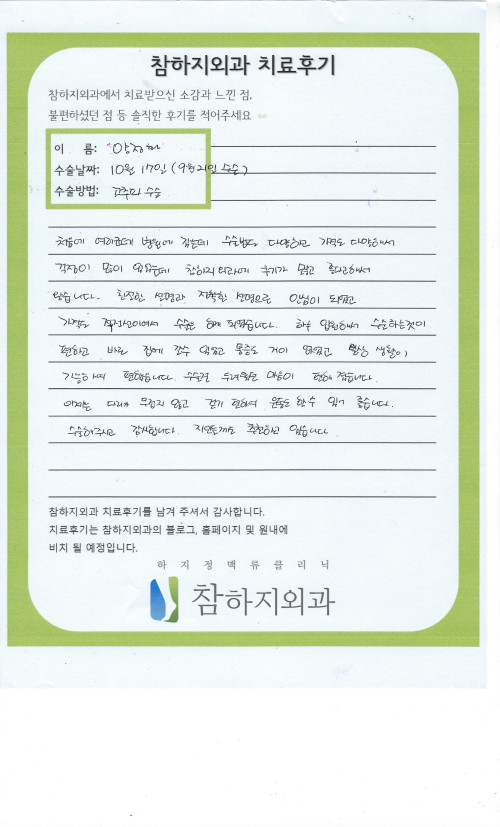 참하지외과 치료후기
참하지외과에서 치료받으신 소감과 느낀 점,
불편하셨던 점 등 솔직한 후기를 적어주세요
이 름:
수술날짜: 10월 17일 (9월 21일 수술)
수술방법: 고주파 수술
처음에 여러군데 병원에 갔는데 수술법도 다양하고 가격도 다양해서
걱정이 많이 있었는데 참하지외과에 후기가 많고 해서
왔습니다. 친절한 설명과 정확한 설명으로 안심이 되었고
가격도 적정선이에서 수술을 하게 되었습니다. 하루 입원해서 수술하는것이
편하고 바로 집에 갈수 있었고 통증도 거이 없었고 일상 생활이
가능하여 편했습니다. 수술전 두려웠던 마음이 편해 졌습니다.
이제는 다리가 무겁지 않고 걷기 편하며 운동도 할 수 있기 좋습니다.
수술해주시고 감사합니다. 지인들께도 추천하고 있습니다
참하지외과 치료후기를 남겨 주셔서 감사합니다.
치료후기는 참하지외과의 블로그, 홈페이지 및 원내에
비치 될 예정입니다.
하지정맥류클리닉
참하지외과